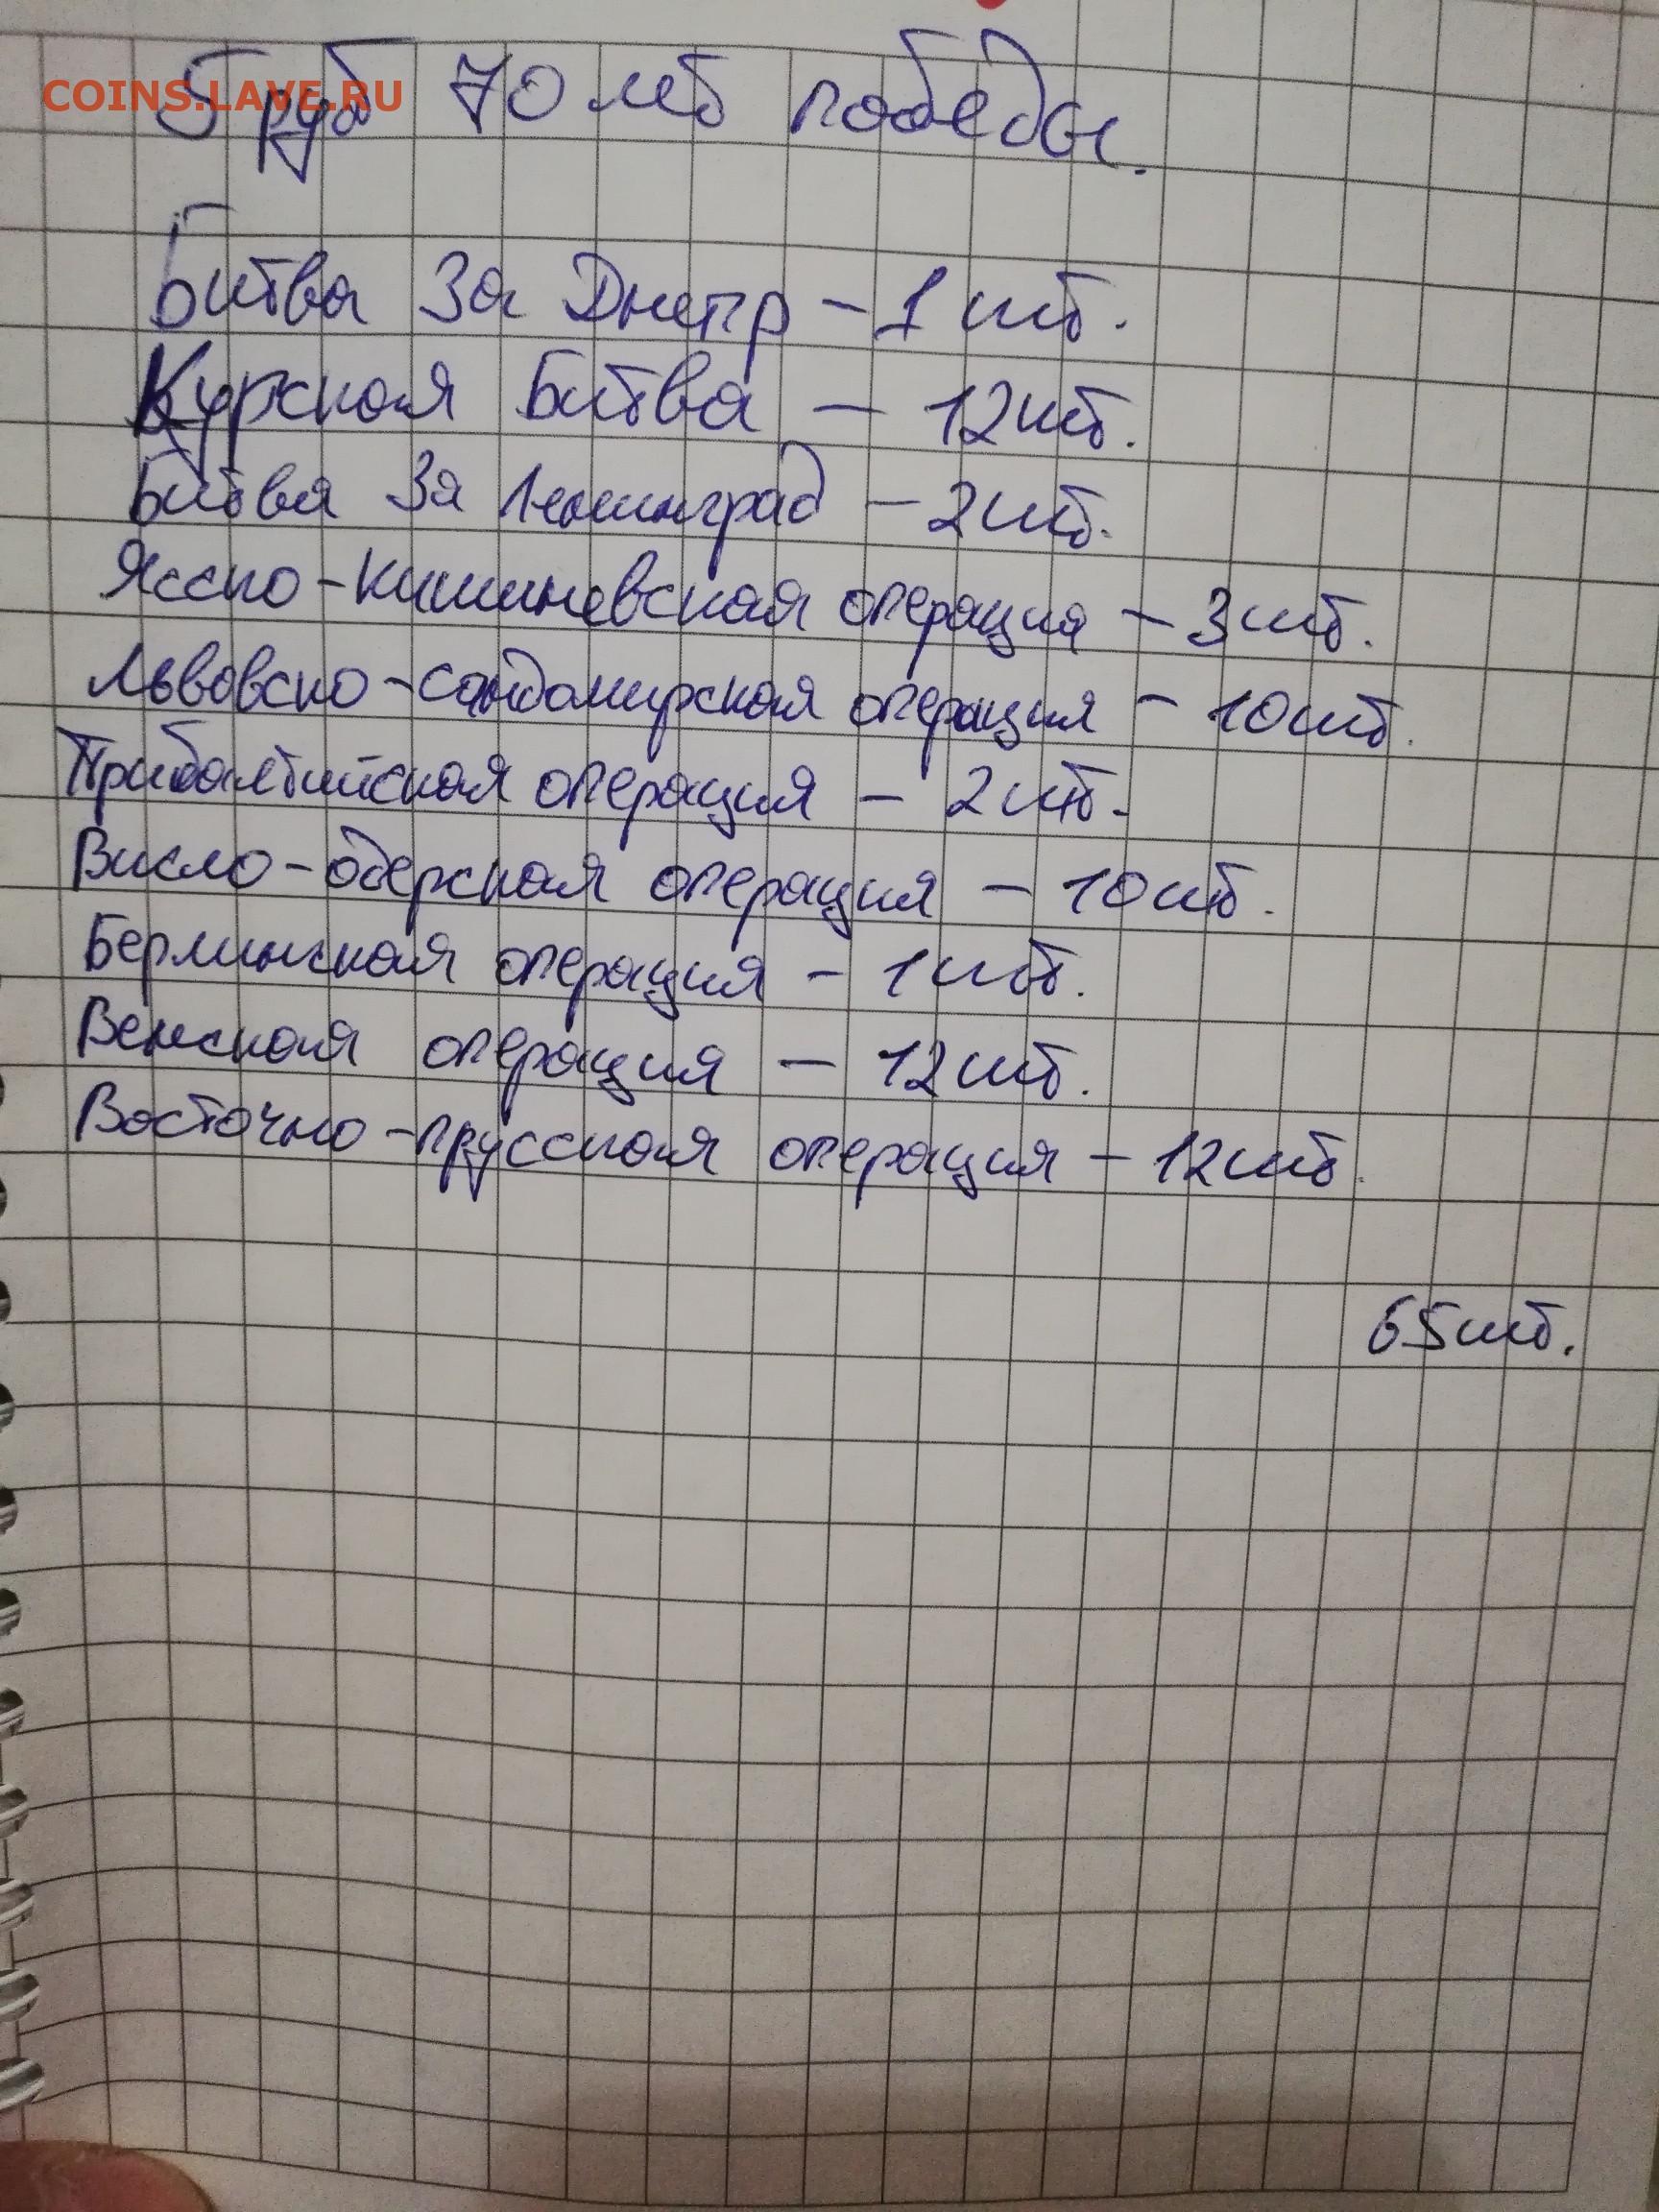 COINS.LAVE.RU
5 руб 70 лет победы.
Битва За Днепр - 1 шт.
Курская Битва - 12 шт.
Битва За Ленинград - 2 шт.
Ясско-Кишиневская операция - 3 шт.
Львовско-сандомирская операция - 10 шт.
Прибалтийская операция - 2 шт.
Висло-одерская операция - 10 шт.
Берлинская операция - 1 шт.
Венская операция - 12 шт.
Восточно-прусская операция - 12 шт.
65 шт.